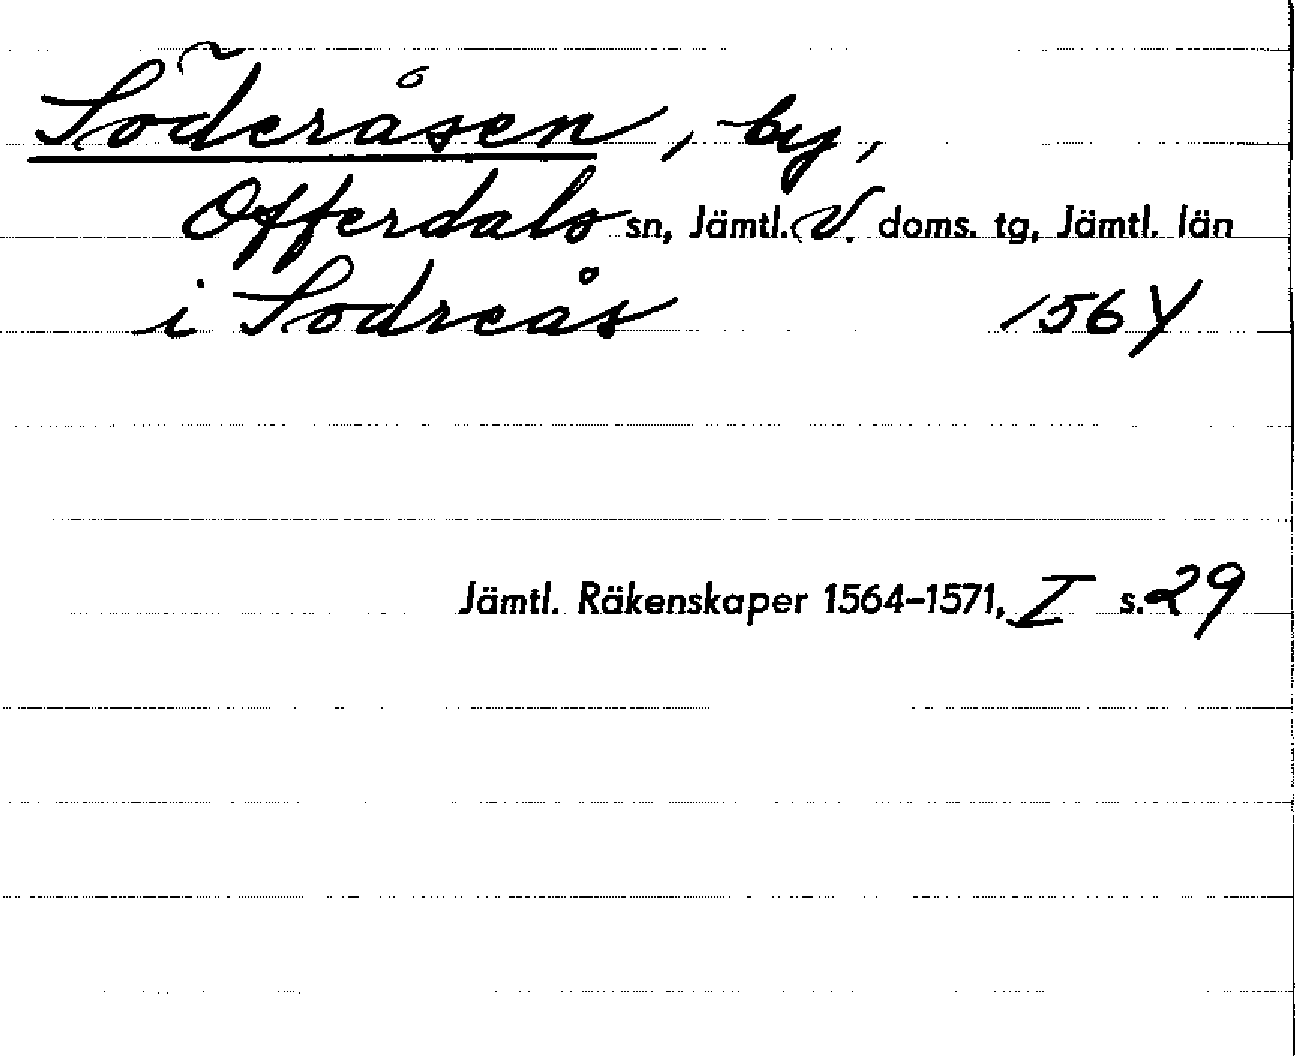 Söderåsen, by,
Offerdals sn, Jämtl. V. doms. tg, Jämtl. län
i Sodreås 1564
Jämtl. Räkenskaper 1564-1571, I s. 29